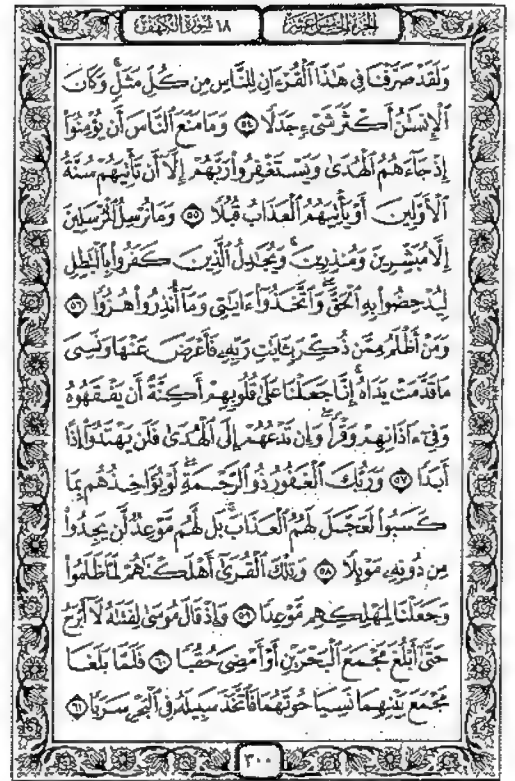 الجزء الخامس عشر
١٨ سورة الكهف
وَلَقَدْ صَرَّفْنَا فِي هَٰذَا ٱلْقُرْءَانِ لِلنَّاسِ مِن كُلِّ مَثَلٍ وَكَانَ
ٱلْإِنسَٰنُ أَكْثَرَ شَىْءٍ جَدَلًا ٥٤ وَمَا مَنَعَ ٱلنَّاسَ أَن يُؤْمِنُوٓا۟
إِذْ جَآءَهُمُ ٱلْهُدَىٰ وَيَسْتَغْفِرُوا۟ رَبَّهُمْ إِلَّآ أَن تَأْتِيَهُمْ سُنَّةُ
ٱلْأَوَّلِينَ أَوْ يَأْتِيَهُمُ ٱلْعَذَابُ قُبُلًا ٥٥ وَمَا نُرْسِلُ ٱلْمُرْسَلِينَ
إِلَّا مُبَشِّرِينَ وَمُنذِرِينَ ۚ وَيُجَٰدِلُ ٱلَّذِينَ كَفَرُوا۟ بِٱلْبَٰطِلِ
لِيُدْحِضُوا۟ بِهِ ٱلْحَقَّ ۖ وَٱتَّخَذُوٓا۟ ءَايَٰتِى وَمَآ أُنذِرُوا۟ هُزُوًا ٥٦
وَمَنْ أَظْلَمُ مِمَّن ذُكِّرَ بِـَٔايَٰتِ رَبِّهِۦ فَأَعْرَضَ عَنْهَا وَنَسِىَ
مَا قَدَّمَتْ يَدَاهُ ۚ إِنَّا جَعَلْنَا عَلَىٰ قُلُوبِهِمْ أَكِنَّةً أَن يَفْقَهُوهُ
وَفِىٓ ءَاذَانِهِمْ وَقْرًا ۖ وَإِن تَدْعُهُمْ إِلَى ٱلْهُدَىٰ فَلَن يَهْتَدُوٓا۟ إِذًا
أَبَدًا ٥٧ وَرَبُّكَ ٱلْغَفُورُ ذُو ٱلرَّحْمَةِ ۖ لَوْ يُؤَاخِذُهُم بِمَا
كَسَبُوا۟ لَعَجَّلَ لَهُمُ ٱلْعَذَابَ ۚ بَل لَّهُم مَّوْعِدٌ لَّن يَجِدُوا۟
مِن دُونِهِۦ مَوْئِلًا ٥٨ وَتِلْكَ ٱلْقُرَىٰٓ أَهْلَكْنَٰهُمْ لَمَّا ظَلَمُوا۟
وَجَعَلْنَا لِمَهْلِكِهِم مَّوْعِدًا ٥٩ وَإِذْ قَالَ مُوسَىٰ لِفَتَىٰهُ لَآ أَبْرَحُ
حَتَّىٰٓ أَبْلُغَ مَجْمَعَ ٱلْبَحْرَيْنِ أَوْ أَمْضِىَ حُقُبًا ٦٠ فَلَمَّا بَلَغَا
مَجْمَعَ بَيْنِهِمَا نَسِيَا حُوتَهُمَا فَٱتَّخَذَ سَبِيلَهُۥ فِى ٱلْبَحْرِ سَرَبًا ٦١
٣٠٠